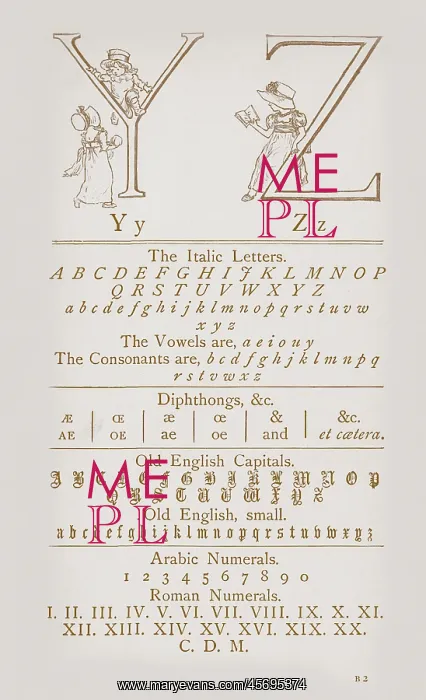 Y Z
ME
PL
Y y Z z
The Italic Letters.
A B C D E F G H I J K L M N O P
Q R S T U V W X Y Z
a b c d e f g h i j k l m n o p q r s t u v w
x y z
The Vowels are, a e i o u y
The Consonants are, b c d f g h j k l m n p q
r s t v w x z
Diphthongs, &c.
Æ Œ æ œ & &c.
AE OE ae oe and et cætera.
Old English Capitals.
A B C D E F G H I J K L M N O P
Q R S T U V W X Y Z
ME
PL
Old English, small.
a b c d e f g h i j k l m n o p q r s t u v w x y z
Arabic Numerals.
1 2 3 4 5 6 7 8 9 0
Roman Numerals.
I. II. III. IV. V. VI. VII. VIII. IX. X. XI.
XII. XIII. XIV. XV. XVI. XIX. XX.
C. D. M.
B 2
www.maryevans.com/45695374